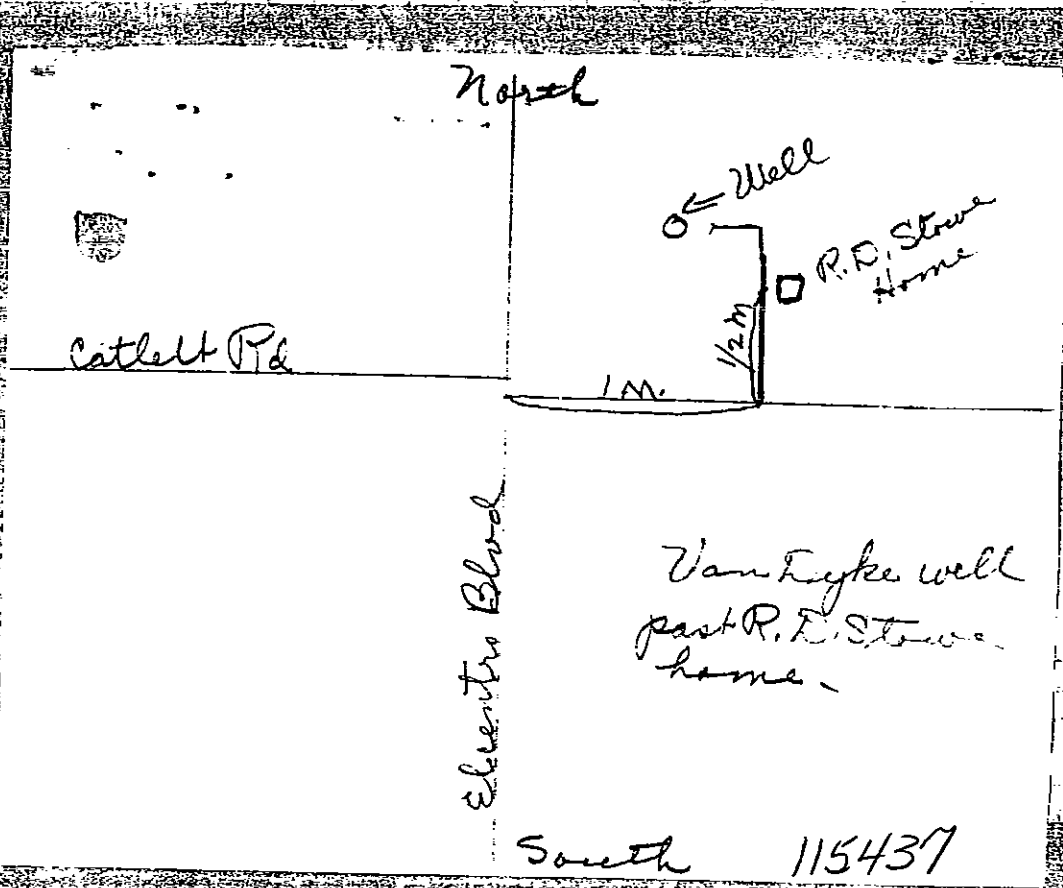 North
← Well
R.D. Stowe
Home
Catlett Rd
1/2 M
1 M.
Elcentro Blvd
Van Dyke well
past R.D. Stowe
home.
South 115437